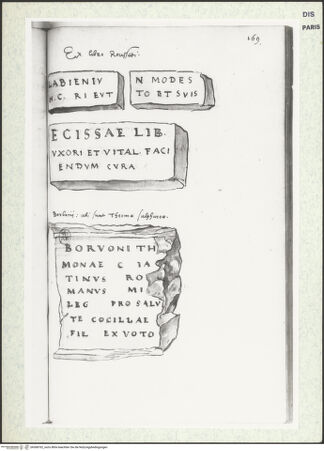 DIS
PARIS
169.
Ex libro
LABIENIV
N.C. RI EVT
N MODES
TO ET SVIS
ECISSAE LIB.
VXORI ET VITAL. FACI
ENDVM CVRA
ubi sunt Thermae
BORVONI TH
MONAE C IA
TINVS RO
MANVS MI
LEG PRO SALV
TE COCILLAE
FIL EX VOTO